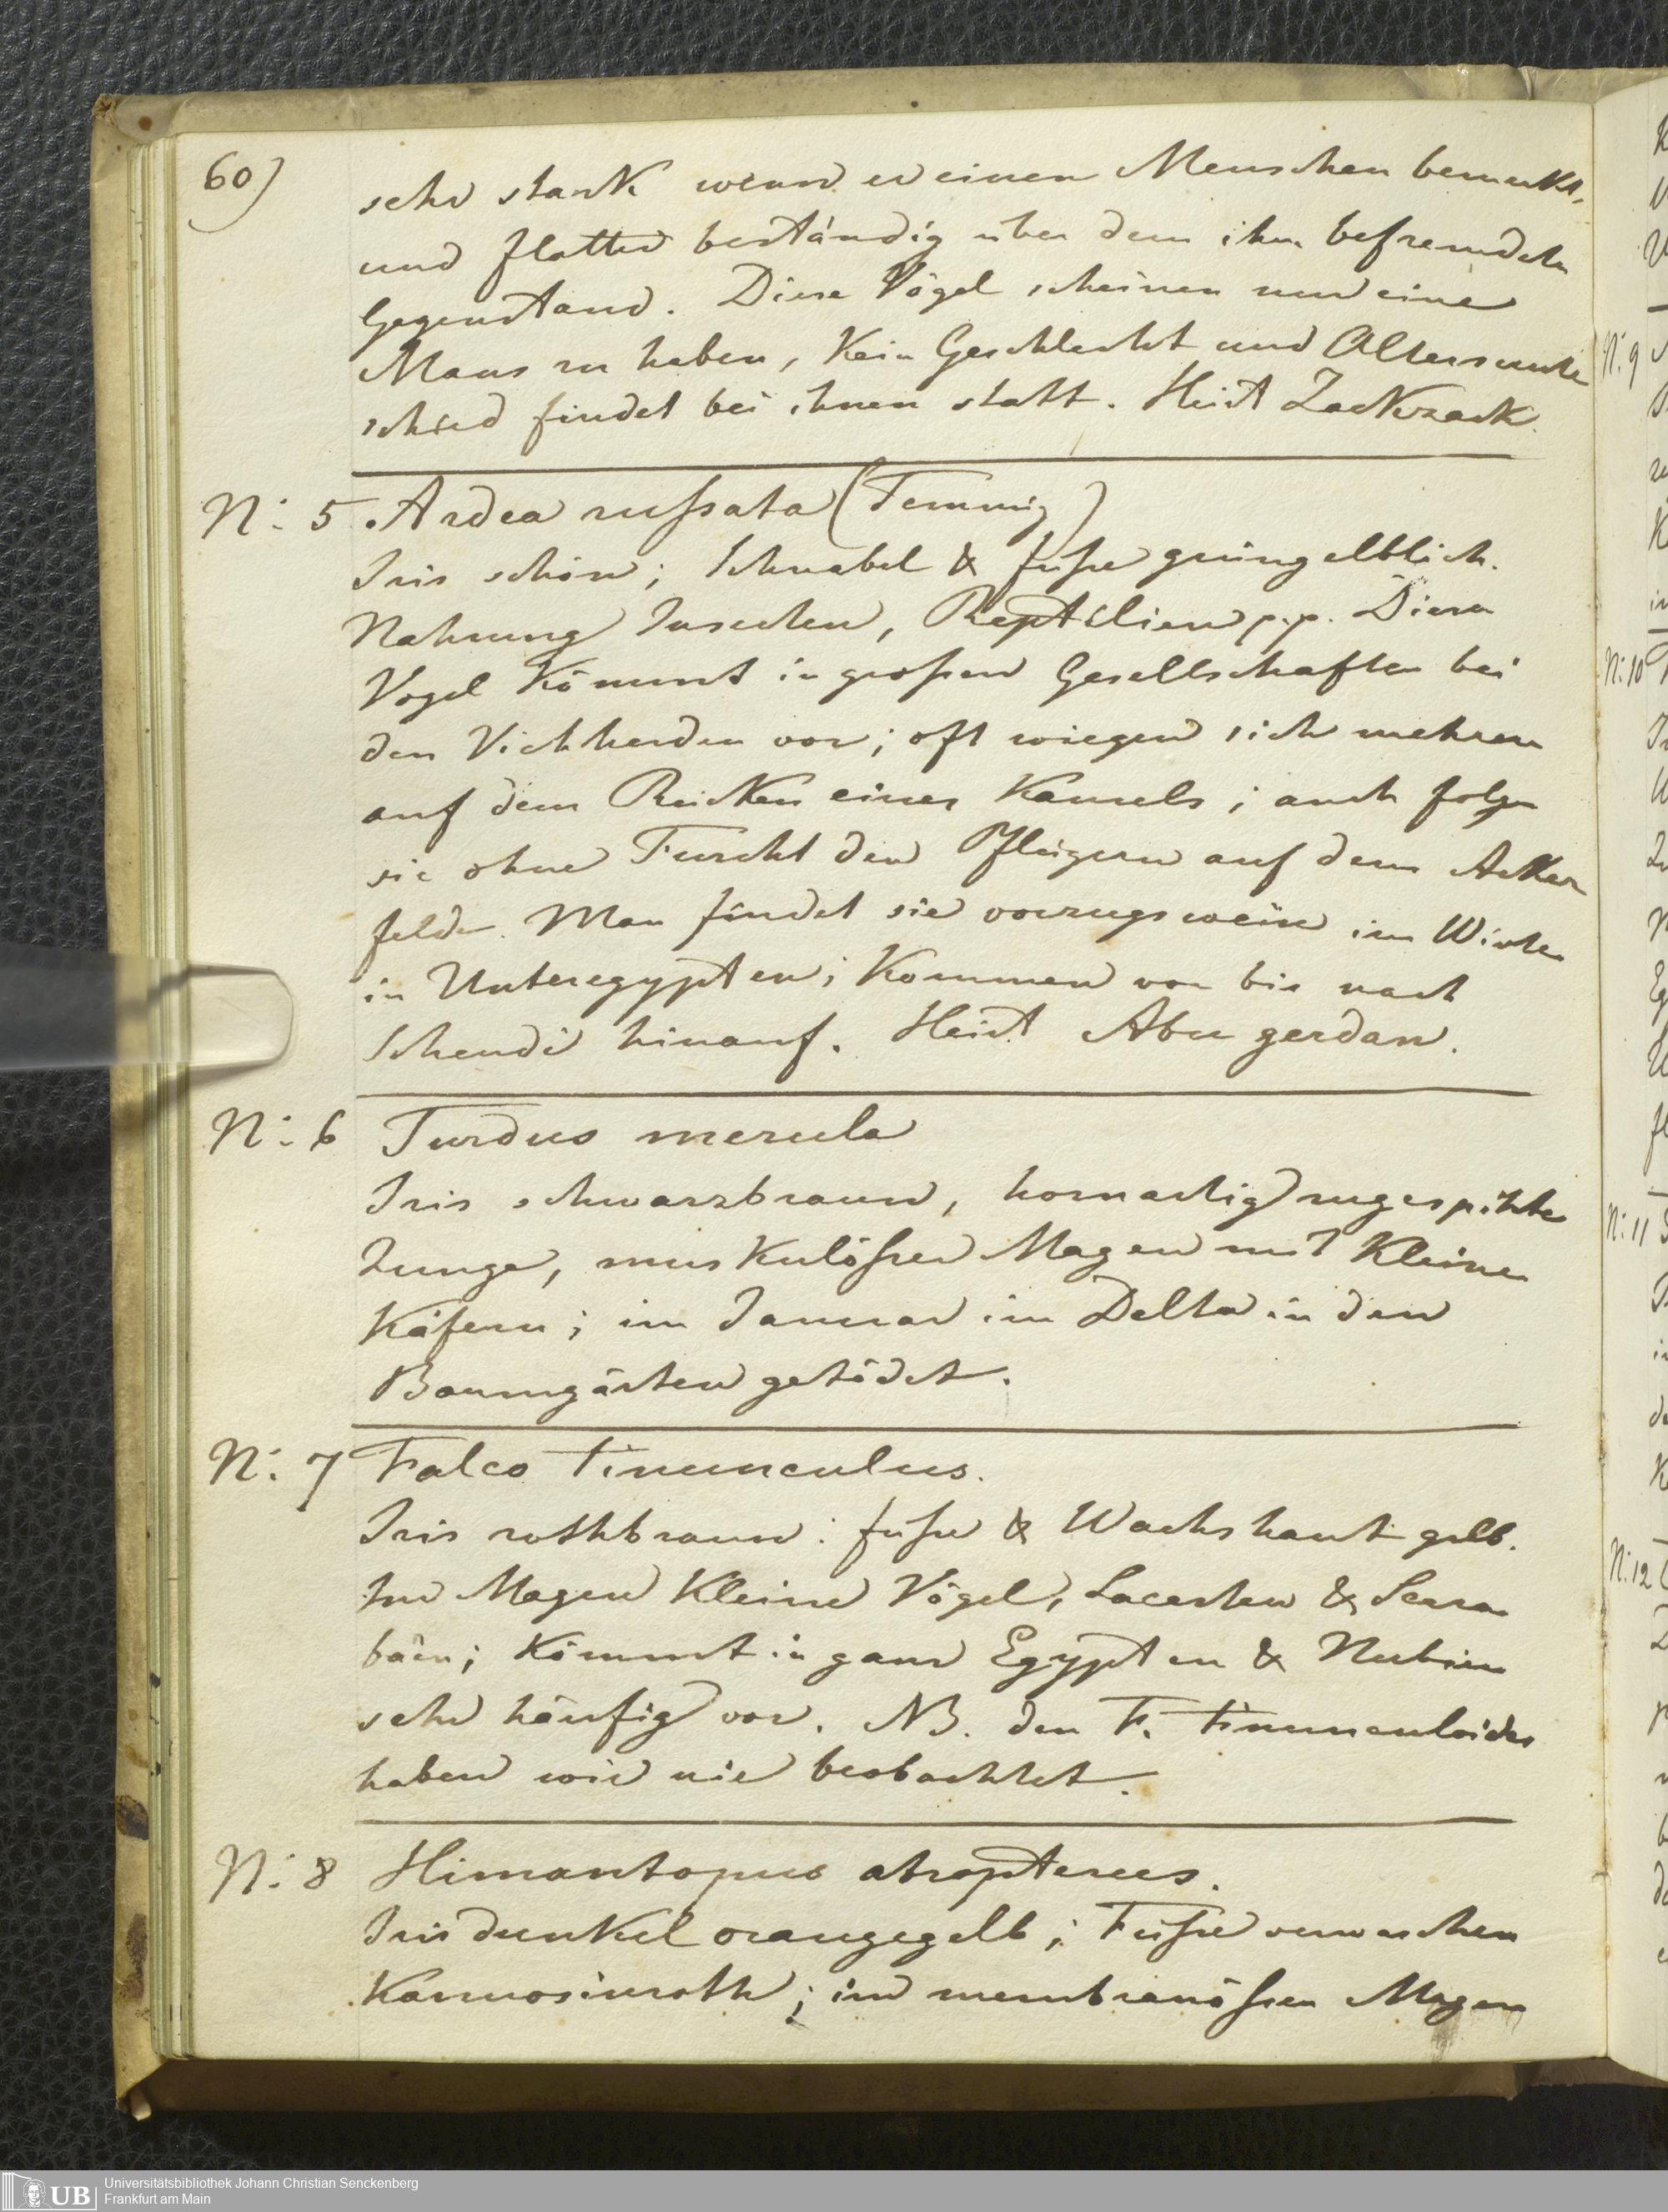 60)
sehr stark wenn er einen Menschen bemerkt,
und flattert beständig über dem ihm befremdeten
Gegenstand. Diese Vögel scheinen nur eine
Maus zu haben, kein Geschlecht und Altersunter
schied findet bei ihnen statt. Heist Zackzack.
N: 5. Ardea russata (Temmig)
Iris schön; Schnabel & fuße grüngelblich.
Nahrung Insecten, Reptilien p.p. Dieser
Vogel kömmt in großen Gesellschaften bei
den Viehherden vor; oft wiegen sich mehrere
auf dem Rücken eines Kameels; auch folgen
sie ohne Furcht den Pflügern auf dem Acker
felde. Man findet sie vorzugsweise im Winter
in Unteregypten; kommen vor bis nach
Schendi hinauf. Heist Abu gerdan.
N: 6 Turdus merula
Iris schwarzbraun, hornartig zugespitzte
Zunge, muskulößer Magen mit kleinen
Käfern; im Januar im Delta in den
Baumgärten getödet.
N: 7 Falco tinunculus.
Iris rothbraun: fuße & Wachshaut gelb.
Im Magen kleine Vögel, Lacerten & Scara
bäen; kömmt in ganz Egypten & Nubien
sehr häufig vor. NB. den F. tinunculoides
haben wir nie beobachtet.
N: 8 Himantopus atropterus.
Iris dunkel orangegelb; Fuße verwaschen
Karmosinroth; im membranößen Magen
N: 9
N: 10
N: 11
N: 12
UB
Universitätsbibliothek Johann Christian Senckenberg
Frankfurt am Main